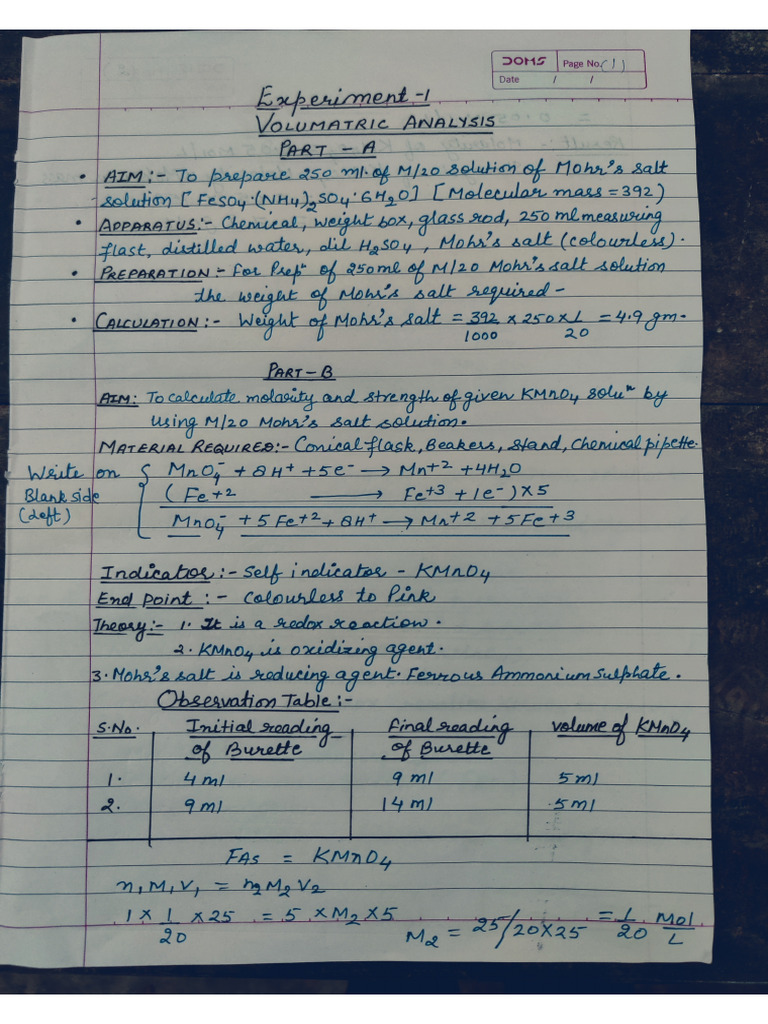 DOMS Page No. (1)
Date / /
Experiment-1
VOLUMATRIC ANALYSIS
PART - A
• AIM:- To prepare 250 ml. of M/20 solution of Mohr's salt
solution [FeSO4·(NH4)2SO4·6H2O] [Molecular mass = 392)
• APPARATUS:- Chemical, weight box, glass rod, 250 ml measuring
flast, distilled water, dil H2SO4, Mohr's salt (colourless).
• PREPARATION:- For Prepⁿ of 250ml of M/20 Mohr's salt solution
the weight of Mohr's salt required -
• CALCULATION:- Weight of Mohr's salt = 392/1000 × 250 × 1/20 = 4.9 gm.
PART-B
AIM: To calculate molarity and strength of given KMnO4 soluⁿ by
using M/20 Mohr's salt solution.
MATERIAL REQUIRED:- Conical flask, Beakers, Stand, Chemical pipette.
Write on Blank side (Left)
MnO4⁻ + 8H⁺ + 5e⁻ → Mn+2 + 4H2O
(Fe+2 → Fe+3 + 1e⁻) × 5
MnO4⁻ + 5Fe+2 + 8H⁺ → Mn+2 + 5Fe+3
Indicator:- Self indicator - KMnO4
End Point:- Colourless to Pink
Theory:- 1. It is a redox reaction.
2. KMnO4 is oxidizing agent.
3. Mohr's salt is reducing agent. Ferrous Ammonium Sulphate.
Observation Table:-
S.No. Initial reading of Burette Final reading of Burette volume of KMnO4
1. 4 ml 9 ml 5 ml
2. 9 ml 14 ml 5 ml
FAS = KMnO4
n1M1V1 = n2M2V2
1 × 1/20 × 25 = 5 × M2 × 5 M2 = 25/20×25 = 1/20 Mol/L